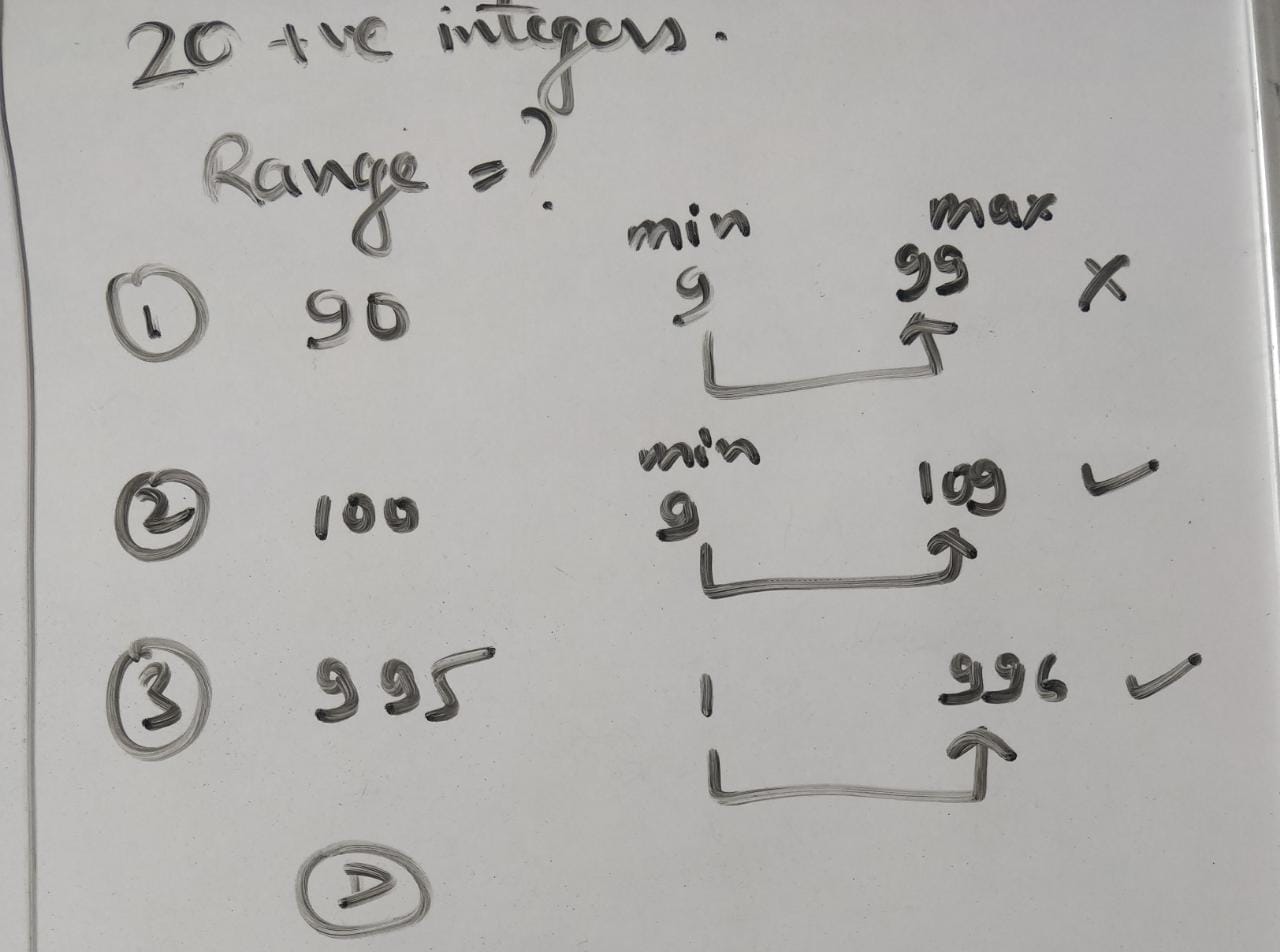 20 +ve integers.
Range = ?
min max
① 90 9 99 X
min
② 100 9 109 ✓
③ 995 1 996 ✓
D